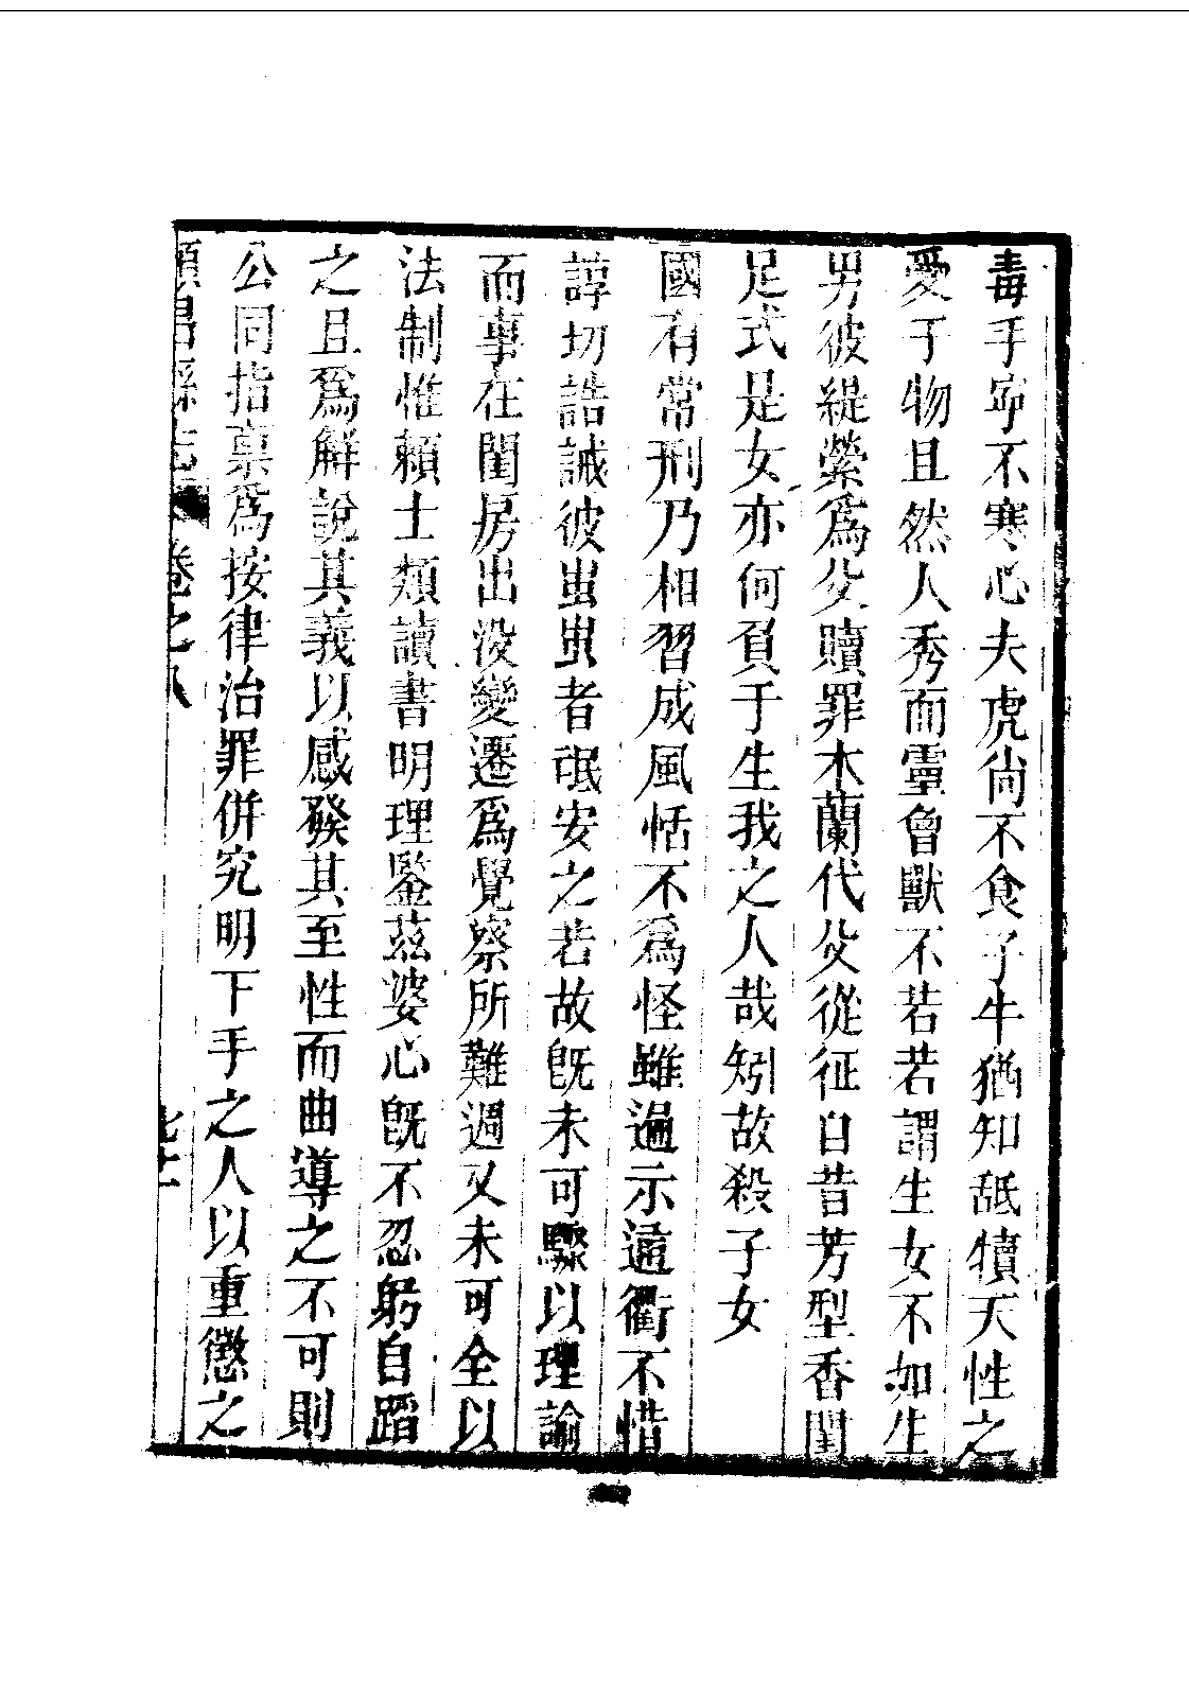 毒手寧不寒心夫虎尚不食子牛猶知舐犢天性之
愛于物且然人秀而靈曾獸不若若謂生女不如生
男彼緹縈爲父贖罪木蘭代父從征自昔芳型香閨
足式是女亦何負于生我之人哉矧故殺子女
國有常刑乃相習成風恬不爲怪雖遍示通衢不惜
諄切誥誡彼蚩蚩者氓安之若故旣未可驟以理諭
而事在閨房出没變遷爲覺察所難週又未可全以
法制惟賴士類讀書明理鑒茲婆心旣不忍躬自蹈
之且爲解說其義以感發其至性而曲導之不可則
公同指稟爲按律治罪併究明下手之人以重懲之
順昌縣志 卷之八